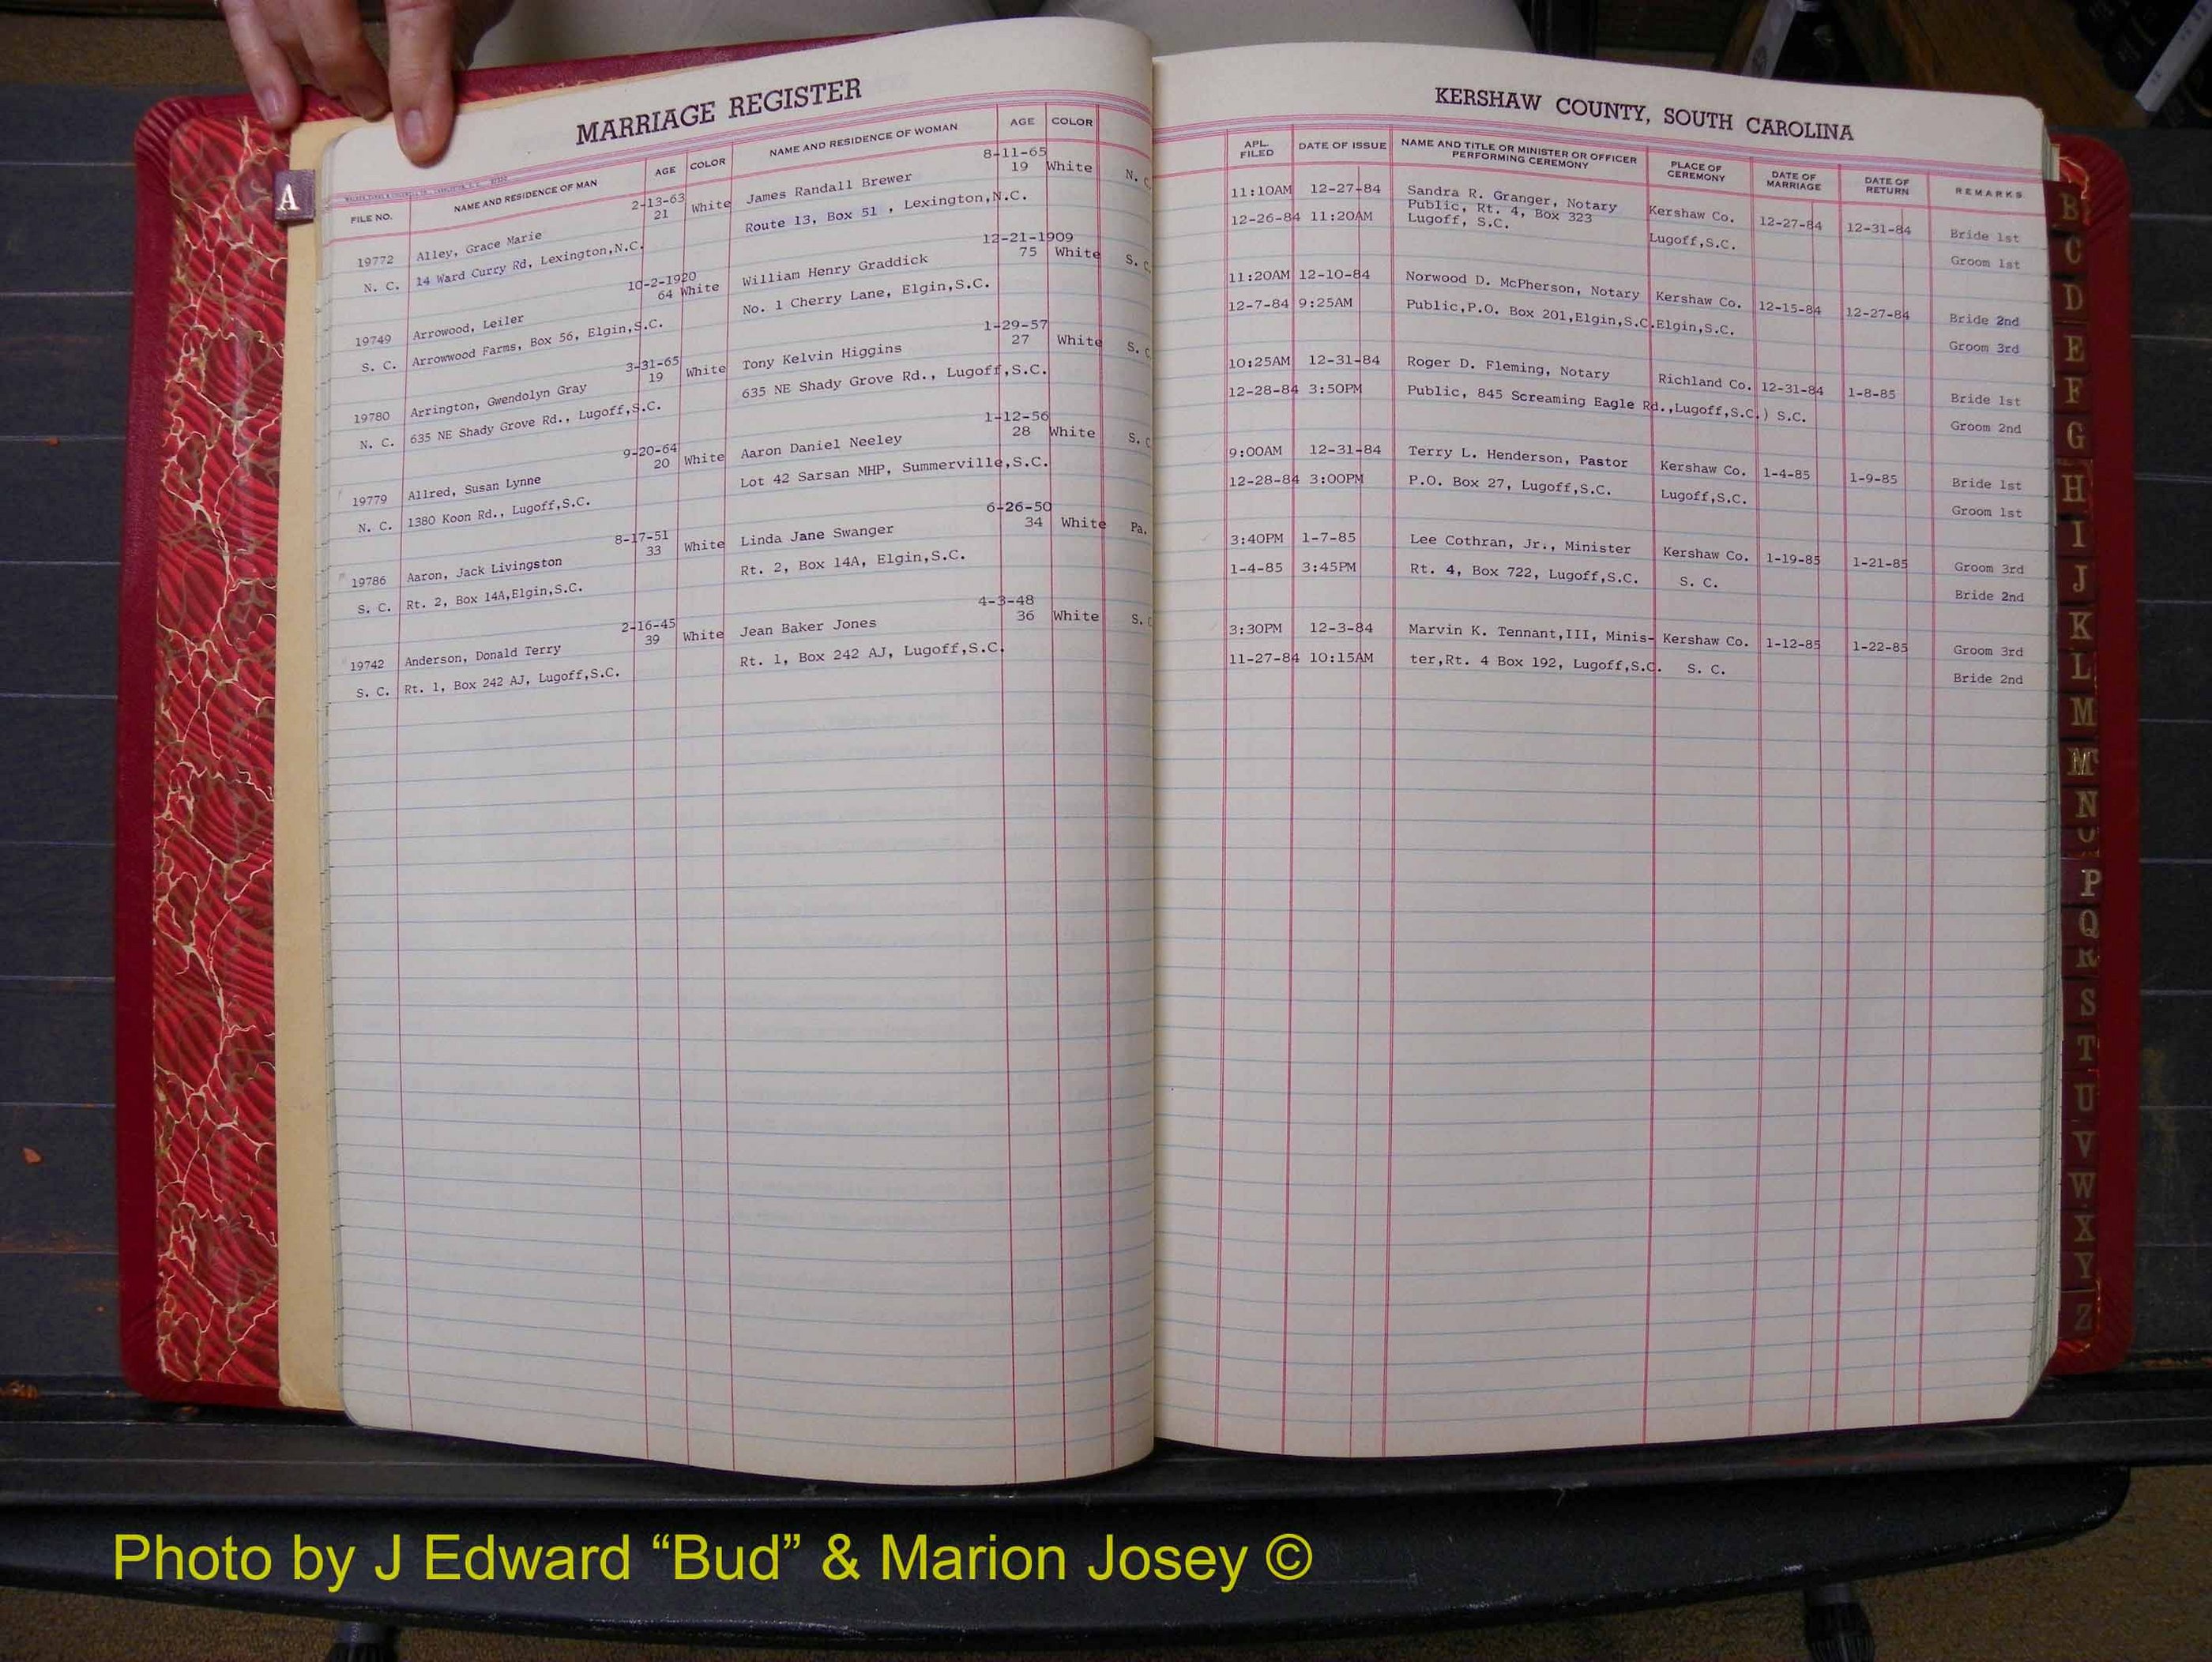 MARRIAGE REGISTER
FILE NO. NAME AND RESIDENCE OF MAN AGE COLOR NAME AND RESIDENCE OF WOMAN AGE COLOR
A
2-13-63 8-11-65
19772 Alley, Grace Marie 21 White James Randall Brewer 19 White N. C
N. C. 14 Ward Curry Rd, Lexington,N.C. Route 13, Box 51 , Lexington,N.C.
10-2-1920 12-21-1909
19749 Arrowood, Leiler 64 White William Henry Graddick 75 White S. C
S. C. Arrowwood Farms, Box 56, Elgin,S.C. No. 1 Cherry Lane, Elgin,S.C.
3-31-65 1-29-57
19780 Arrington, Gwendolyn Gray 19 White Tony Kelvin Higgins 27 White S. C
N. C. 635 NE Shady Grove Rd., Lugoff,S.C. 635 NE Shady Grove Rd., Lugoff,S.C.
9-20-64 1-12-56
19779 Allred, Susan Lynne 20 White Aaron Daniel Neeley 28 White S. C
N. C. 1380 Koon Rd., Lugoff,S.C. Lot 42 Sarsan MHP, Summerville,S.C.
8-17-51 6-26-50
19786 Aaron, Jack Livingston 33 White Linda Jane Swanger 34 White Pa.
S. C. Rt. 2, Box 14A,Elgin,S.C. Rt. 2, Box 14A, Elgin,S.C.
2-16-45 4-3-48
19742 Anderson, Donald Terry 39 White Jean Baker Jones 36 White S. C
S. C. Rt. 1, Box 242 AJ, Lugoff,S.C. Rt. 1, Box 242 AJ, Lugoff,S.C.
KERSHAW COUNTY, SOUTH CAROLINA
APL. FILED DATE OF ISSUE NAME AND TITLE OR MINISTER OR OFFICER PERFORMING CEREMONY PLACE OF CEREMONY DATE OF MARRIAGE DATE OF RETURN REMARKS
11:10AM 12-27-84 Sandra R. Granger, Notary Kershaw Co. 12-27-84 12-31-84 Bride 1st
Public, Rt. 4, Box 323
12-26-84 11:20AM Lugoff, S.C. Lugoff,S.C. Groom 1st
11:20AM 12-10-84 Norwood D. McPherson, Notary Kershaw Co. 12-15-84 12-27-84 Bride 2nd
12-7-84 9:25AM Public,P.O. Box 201,Elgin,S.C.Elgin,S.C. Groom 3rd
10:25AM 12-31-84 Roger D. Fleming, Notary Richland Co. 12-31-84 1-8-85 Bride 1st
12-28-84 3:50PM Public, 845 Screaming Eagle Rd.,Lugoff,S.C.) S.C. Groom 2nd
9:00AM 12-31-84 Terry L. Henderson, Pastor Kershaw Co. 1-4-85 1-9-85 Bride 1st
12-28-84 3:00PM P.O. Box 27, Lugoff,S.C. Lugoff,S.C. Groom 1st
3:40PM 1-7-85 Lee Cothran, Jr., Minister Kershaw Co. 1-19-85 1-21-85 Groom 3rd
1-4-85 3:45PM Rt. 4, Box 722, Lugoff,S.C. S. C. Bride 2nd
3:30PM 12-3-84 Marvin K. Tennant,III, Minis- Kershaw Co. 1-12-85 1-22-85 Groom 3rd
11-27-84 10:15AM ter,Rt. 4 Box 192, Lugoff,S.C. S. C. Bride 2nd
B
C
D
E
F
G
H
I
J
K
L
M
Mc
N
O
P
Q
R
S
T
U
V
W
X
Y
Z
Photo by J Edward “Bud” & Marion Josey ©